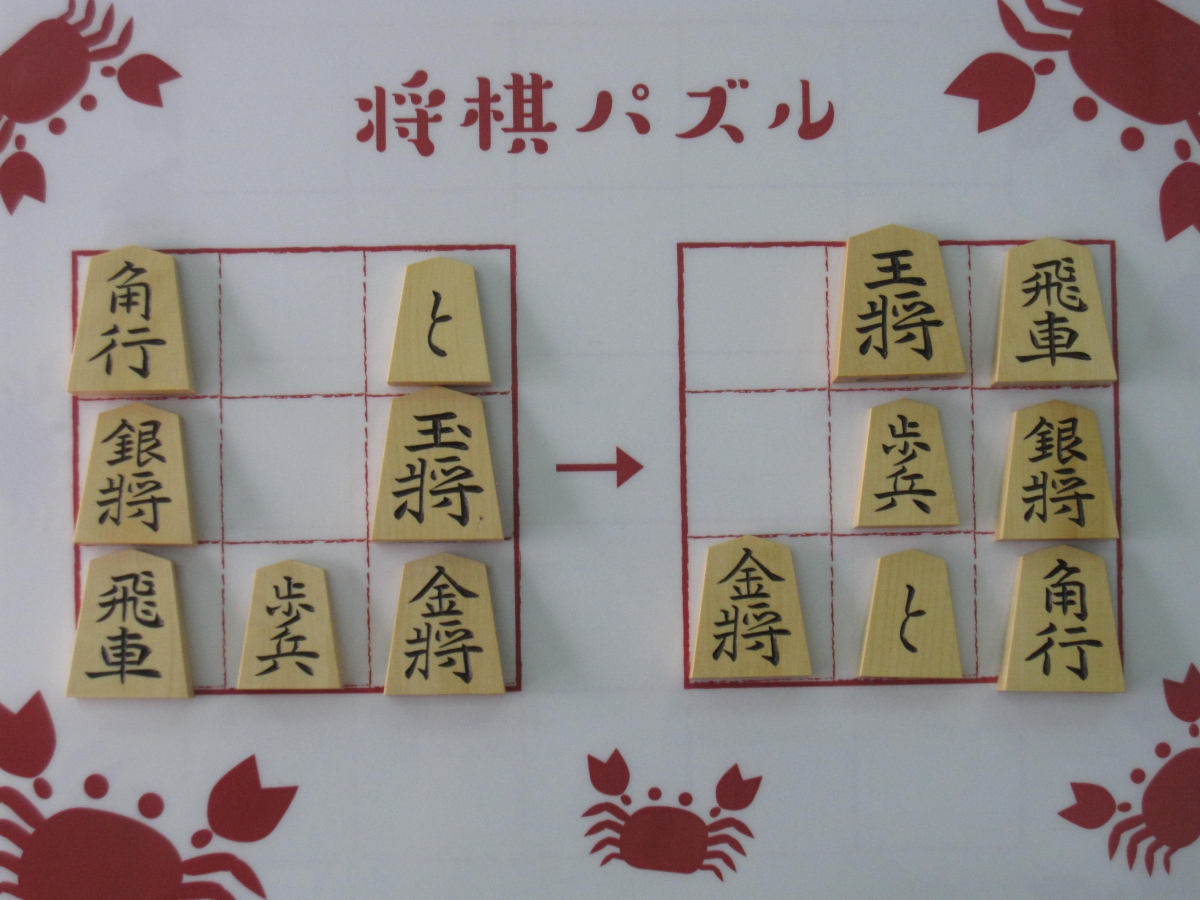 将棋パズル
角行
と
銀将
玉将
飛車
歩兵
金将
王将
飛車
歩兵
銀将
金将
と
角行